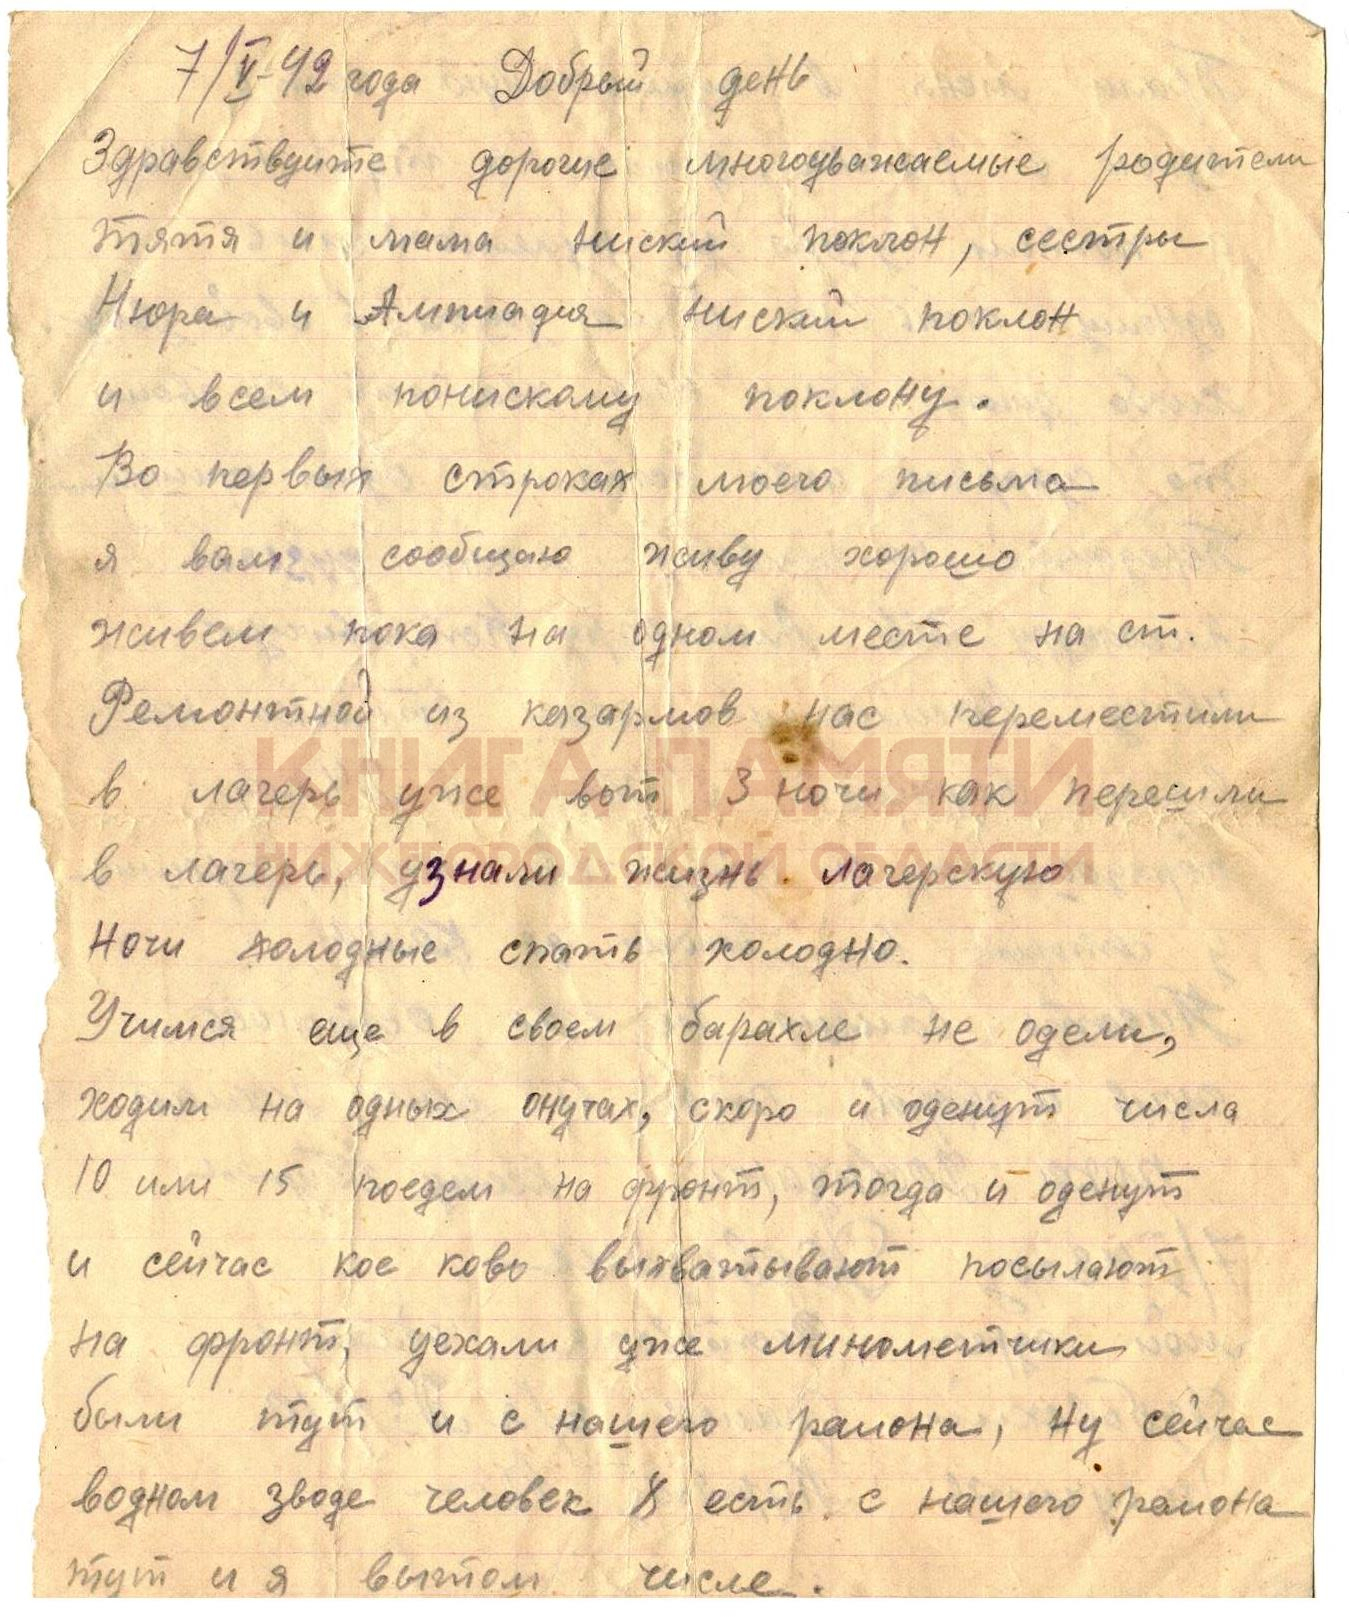 7/V-42 года Добрый день
Здравствуите дорогие многоуважаемые родители
тятя и мама ниский поклон, сестры
Нюра и Ампиадия ниский поклон
и всем понискаму поклону.
Во первых строках моего письма
я вам сообщаю живу хорошо
живем пока на одном месте на ст.
Ремонтной из казармов нас переместили
в лагерь уже вот 3 ночи как перешли
в лагерь, узнали жизнь лагерскую
ночи холодные спать холодно.
Учимся еще в своем барахле не одели,
ходим на одных онучах, скоро и оденут числа
10 или 15 поедем на фронт, тогда и оденут
и сейчас кое ково выхватывают посылают
на фронт, уехали уже минометчики
были тут и с нашего раиона, ну сейчас
водном зводе человек 8 есть с нашего раиона
тут и я вытом числе.
КНИГА ПАМЯТИ
НИЖЕГОРОДСКОЙ ОБЛАСТИ